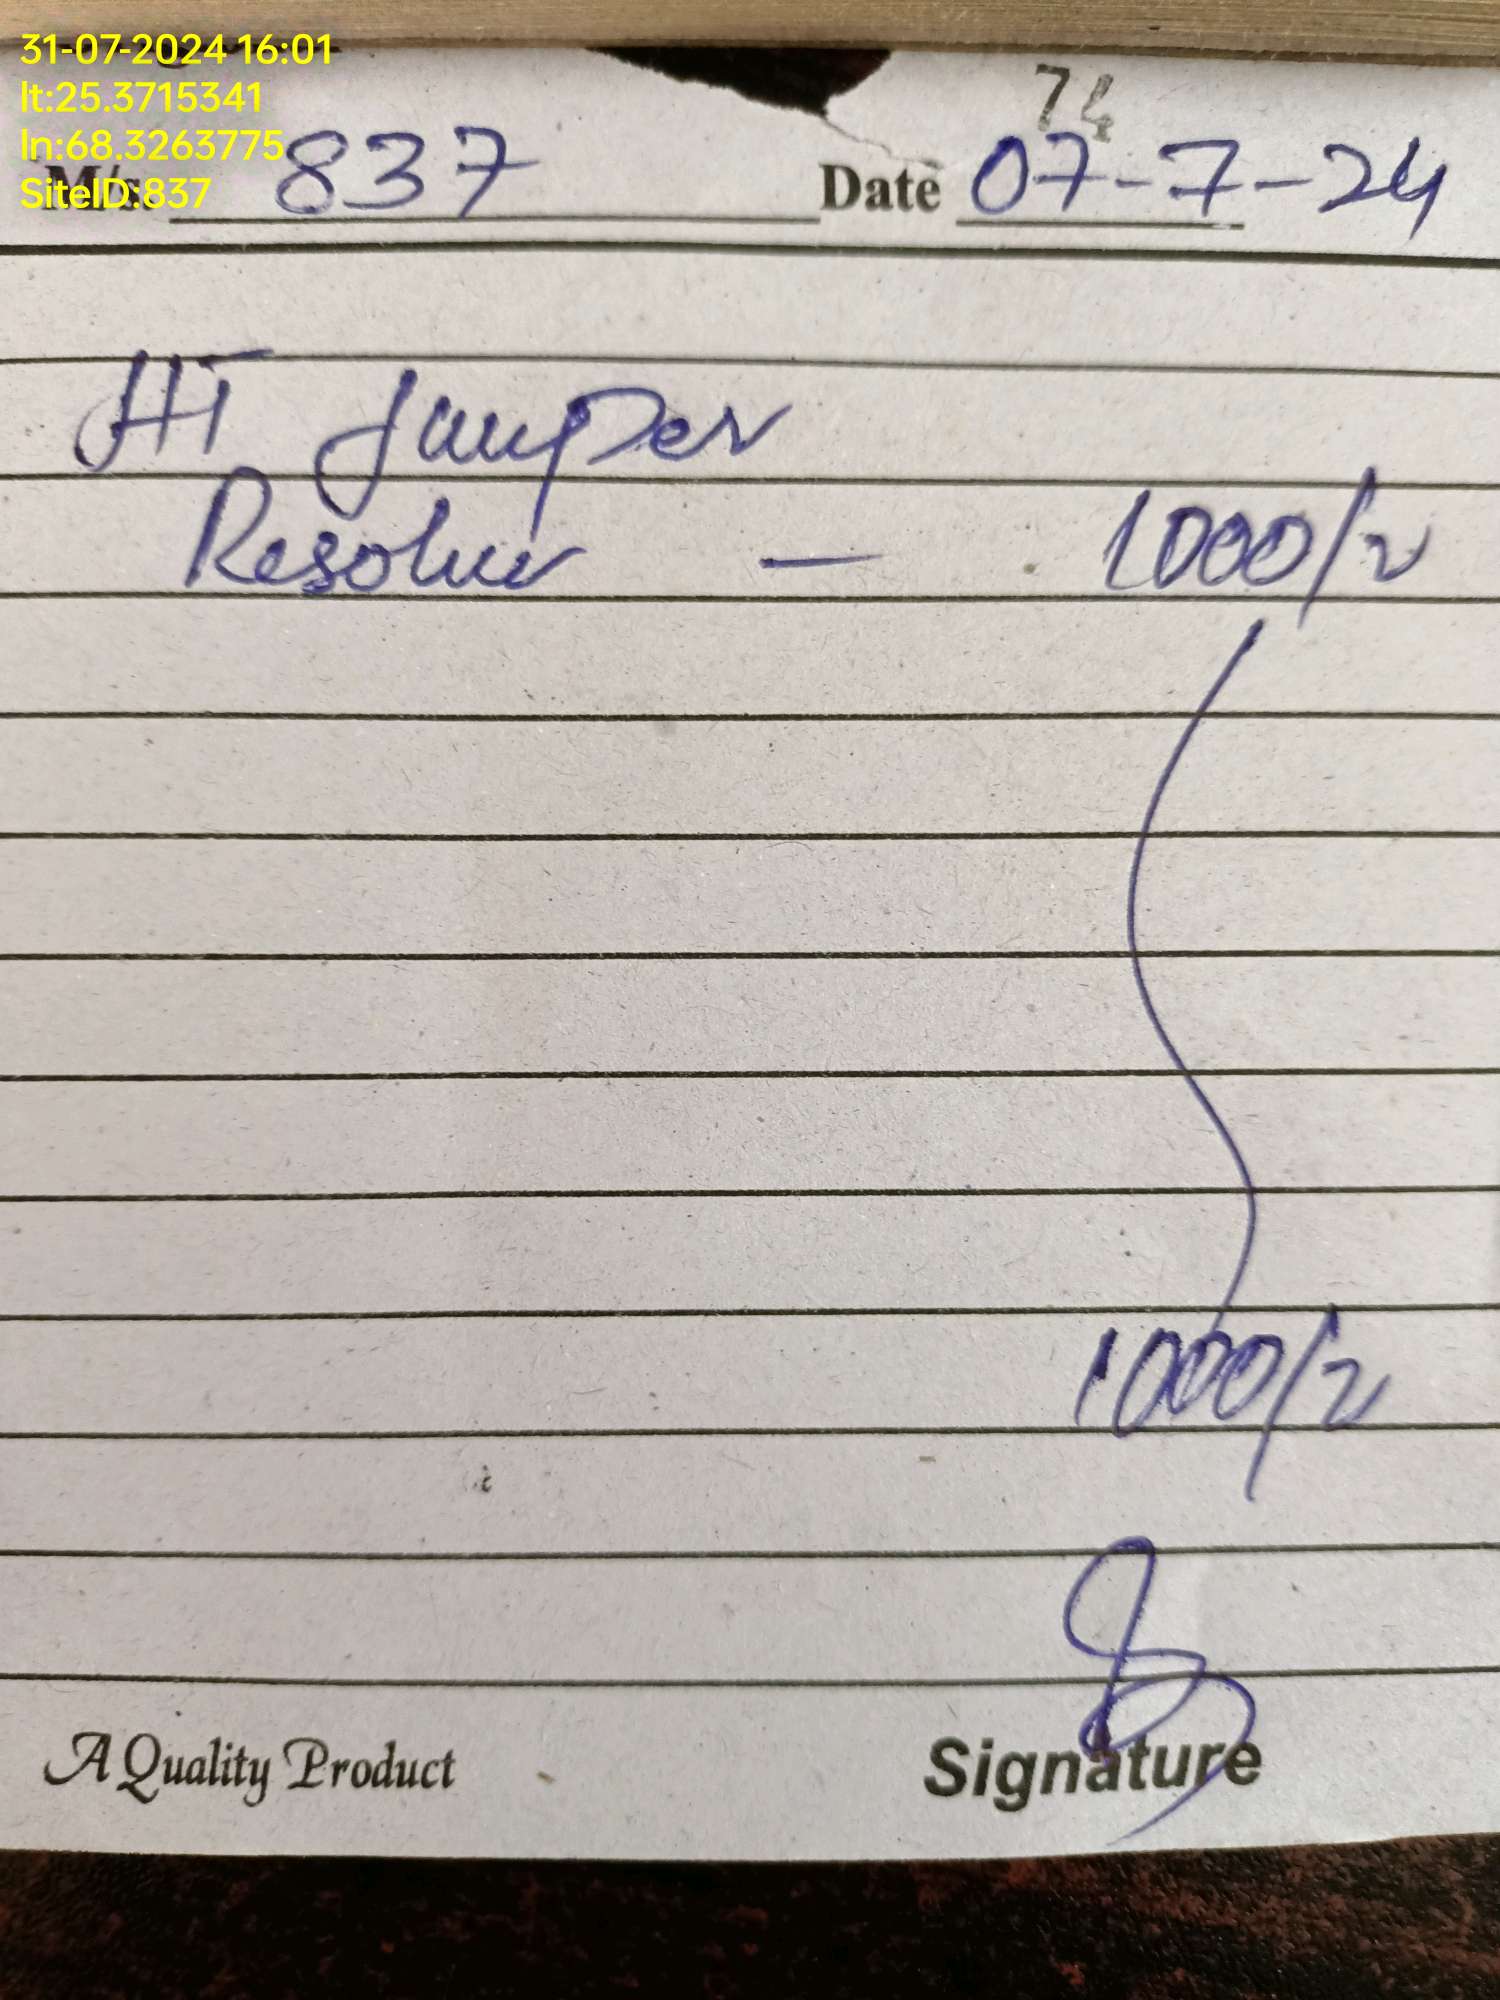 31-07-2024 16:01
lt:25.3715341
ln:68.3263775
SiteID:837
74
M/s. 837 Date 07-7-24
HT Jumper
Resolve — 1000/-
1000/-
A Quality Product Signature